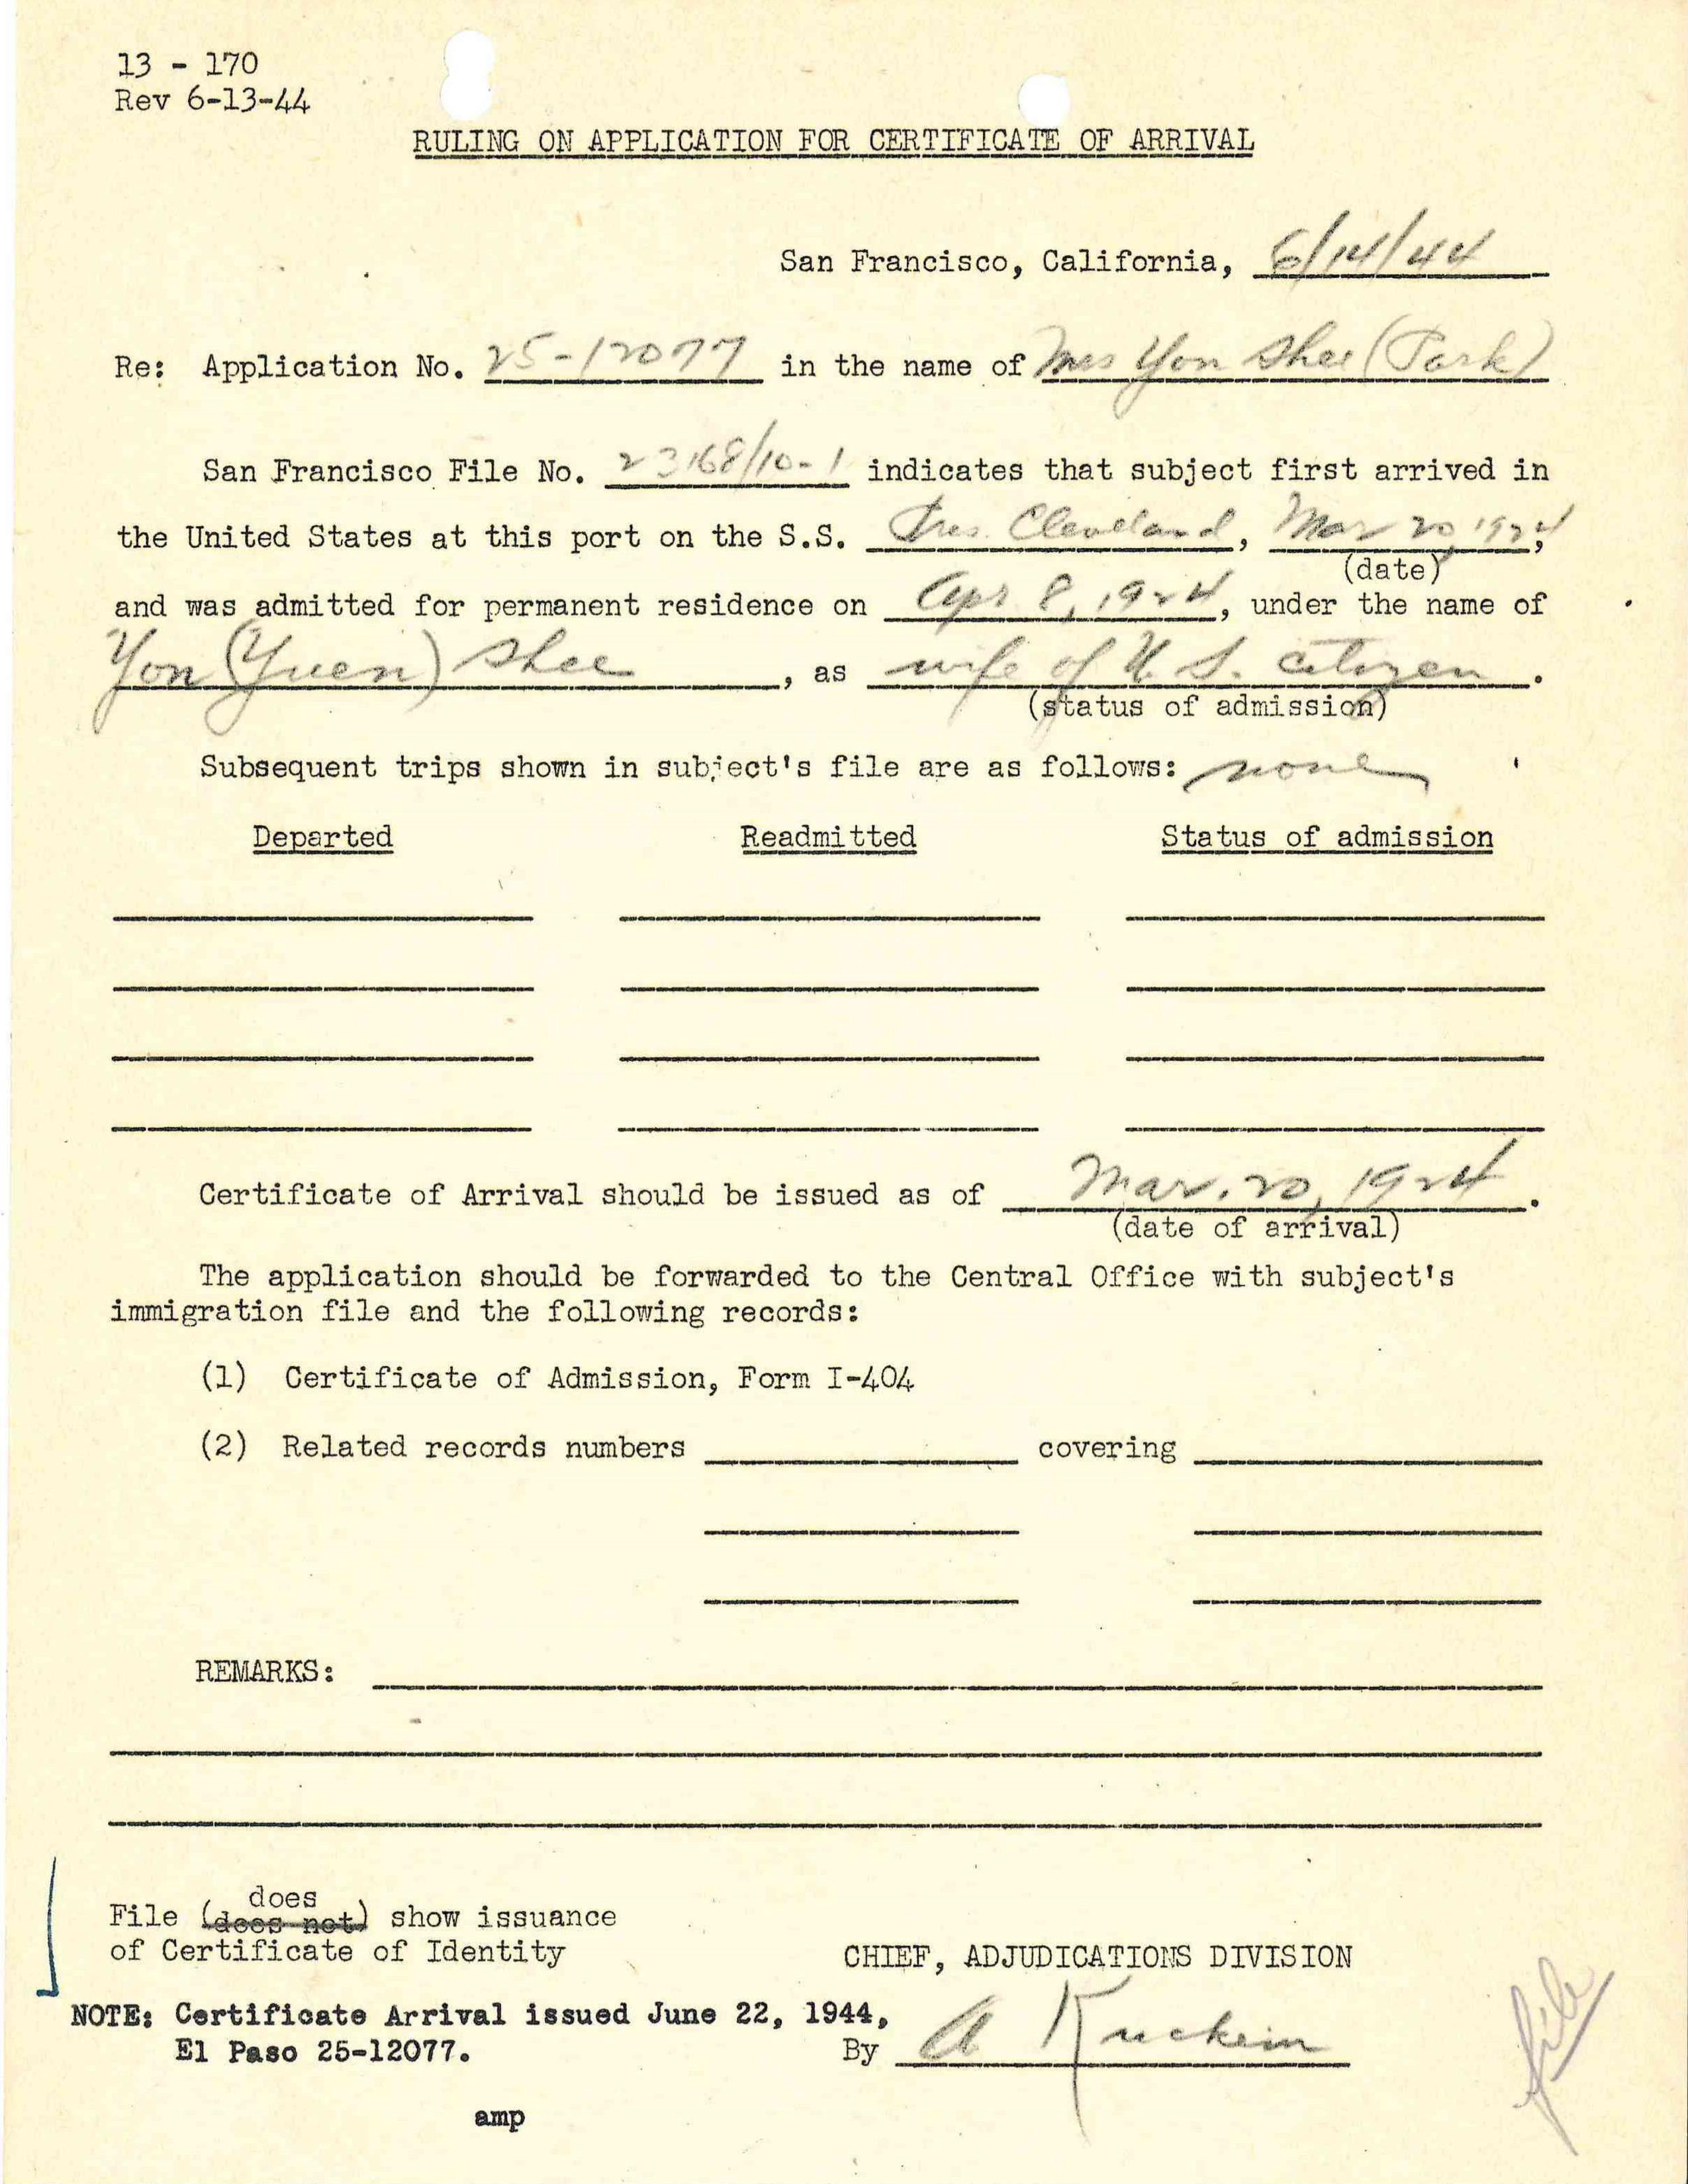 13 - 170
Rev 6-13-44
RULING ON APPLICATION FOR CERTIFICATE OF ARRIVAL
San Francisco, California, 6/14/44
Re: Application No. 25-12077 in the name of Mrs Yon Shee (Park)
San Francisco File No. 23168/10-1 indicates that subject first arrived in
the United States at this port on the S.S. Pres. Cleveland, Mar 20, 1924,
(date)
and was admitted for permanent residence on Apr 8, 1924, under the name of
Yon (Yuen) Shee, as wife of U. S. citizen.
(status of admission)
Subsequent trips shown in subject's file are as follows: none
Departed Readmitted Status of admission
Certificate of Arrival should be issued as of Mar. 20, 1924.
(date of arrival)
The application should be forwarded to the Central Office with subject's
immigration file and the following records:
(1) Certificate of Admission, Form I-404
(2) Related records numbers covering
REMARKS:
does
File (does not) show issuance
of Certificate of Identity
CHIEF, ADJUDICATIONS DIVISION
NOTE: Certificate Arrival issued June 22, 1944,
El Paso 25-12077.
By A
amp
file